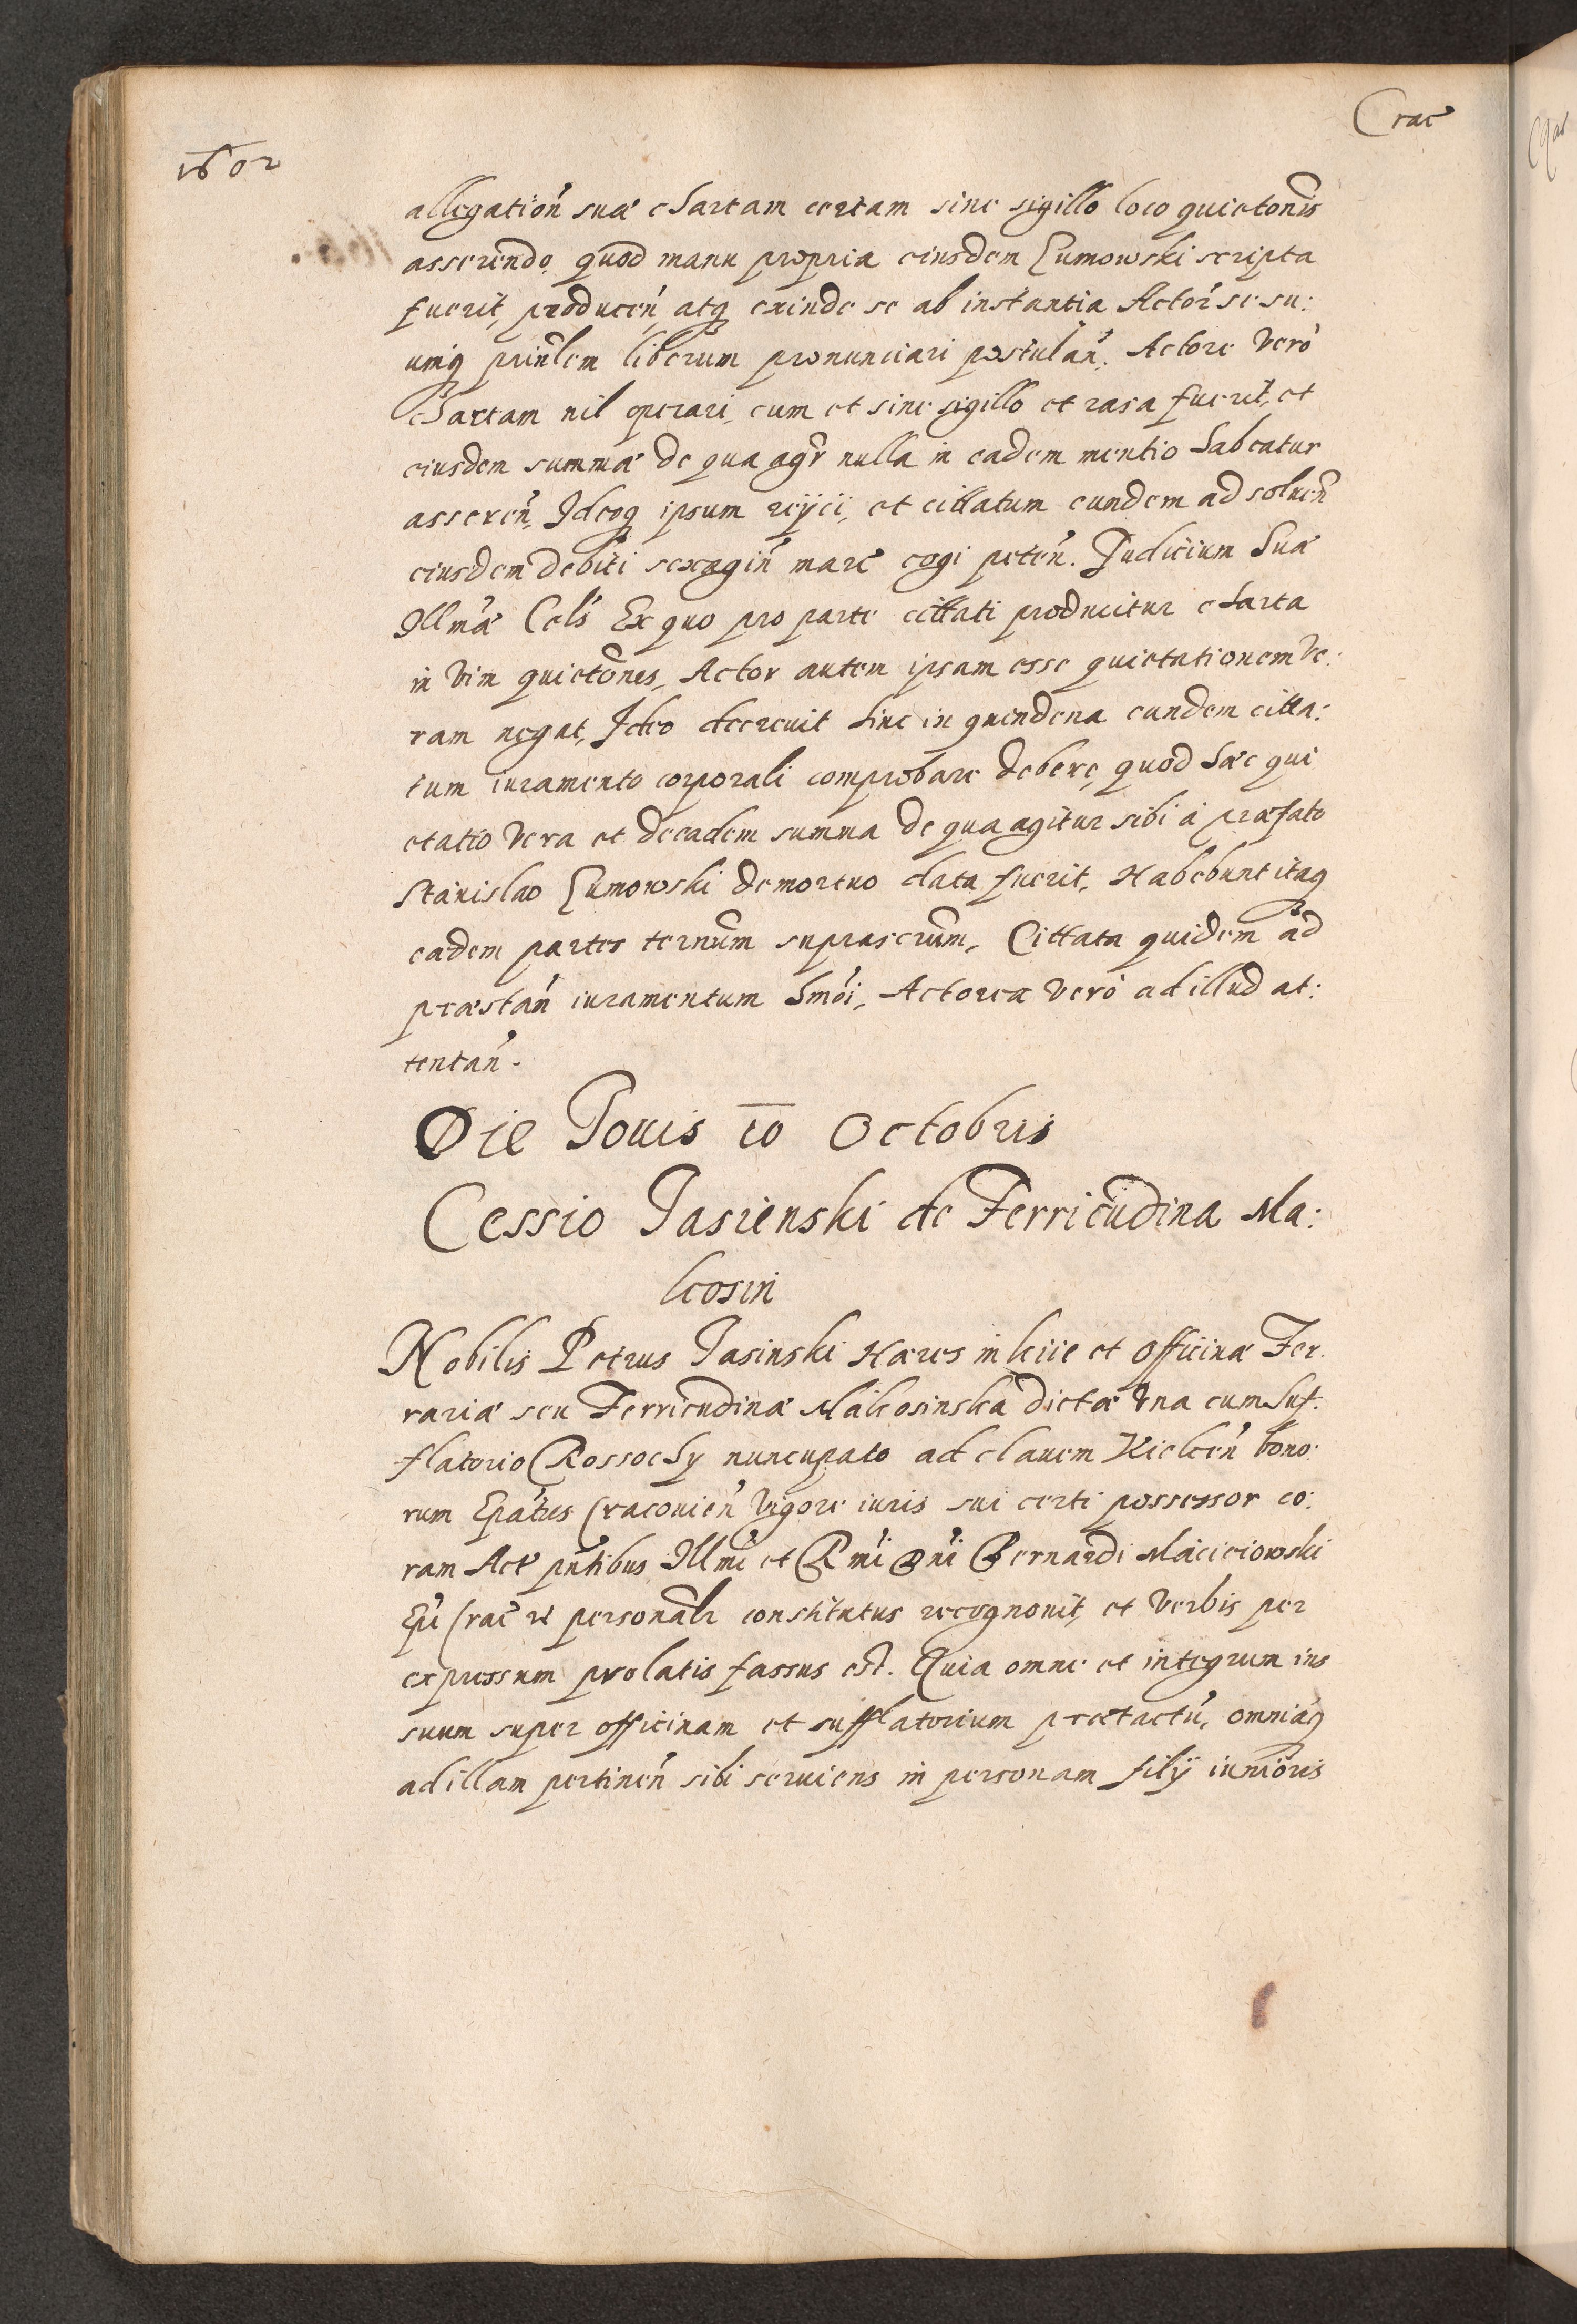 Crac
1602
allegation suæ chartam certam sine sigillo loco quietonis
asserendo, quod manu propria eiusdem Lumowski scripta
fuerit, producen atq exinde se ab instantia Actor se su:
umq prinlem liberum pronunciari postulan. Actore vero
chartam nil operari, cum et sine sigillo et rasa fuerit, et
eiusdem summæ de qua agr nulla in eadem mentio habeatur
asseren, Ideoq ipsum reijci, et cittatum eundem ad soluen
eiusdem debiti sexagin marc cogi peten. Judicium Sua
Illma Cels Ex quo pro parte cittati producitur charta
in vim quietonis, Actor autem ipsam esse quietationem ve:
ram negat, Ideo decrevit hinc in quindena eundem citta:
tum iuramento corporali comprobare debere, quod hæc qui
etatio vera et de eadem summa de qua agitur sibi à præfato
Stanislao Lumowski demortuo data fuerit, Habebunt itaq
eadem partes ternum suprascrum, Cittata quidem ad
præstan iuramentum hmoi, Actorea vero ad illud at:
tentan.
Die Jouis 10 Octobris
Cessio Jasienski de Ferricudina Ma:
lcosin
Nobilis Petrus Jasinski Hæres in Kiie et officinæ Fer
rariæ seu Ferricudinæ Malcosinska dictæ vna cum Suf:
flatorio Rossochy nuncupato ad clauem Kielcen bono:
rum Epatus Cracouien vigore iuris sui certi possessor co:
ram Act pntibus Illmi et Rmi Dni Bernardi Macieiowski
Epi Crac personalr constitutus recognouit, et verbis per
expressum prolatis fassus est. Quia omne et integrum ius
suum super officinam et sufflatorium prætactu, omniaq
ad illam pertinen sibi seruiens in personam filij iunioris